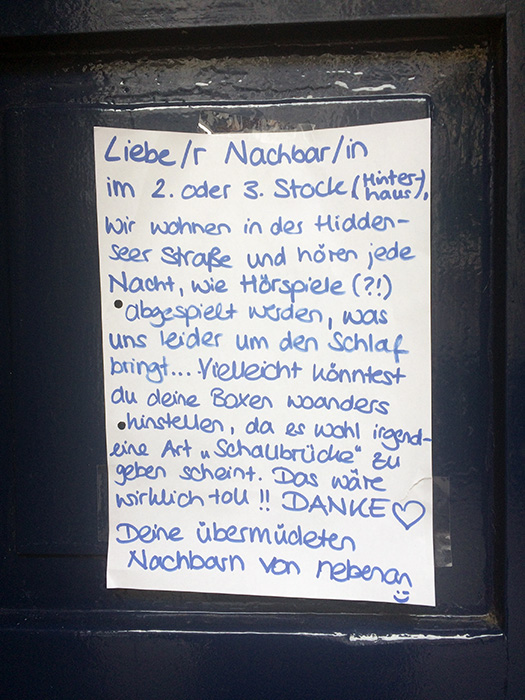 Liebe/r Nachbar/in
im 2. oder 3. Stock (Hinter-
haus),
wir wohnen in der Hidden-
seer Straße und hören jede
Nacht, wie Hörspiele (?!)
abgespielt werden, was
uns leider um den Schlaf
bringt... Vielleicht könntest
du deine Boxen woanders
hinstellen, da es wohl irgend-
eine Art „Schallbrücke" zu
geben scheint. Das wäre
wirklich toll!! DANKE ♡
Deine übermüdeten
Nachbarn von nebenan